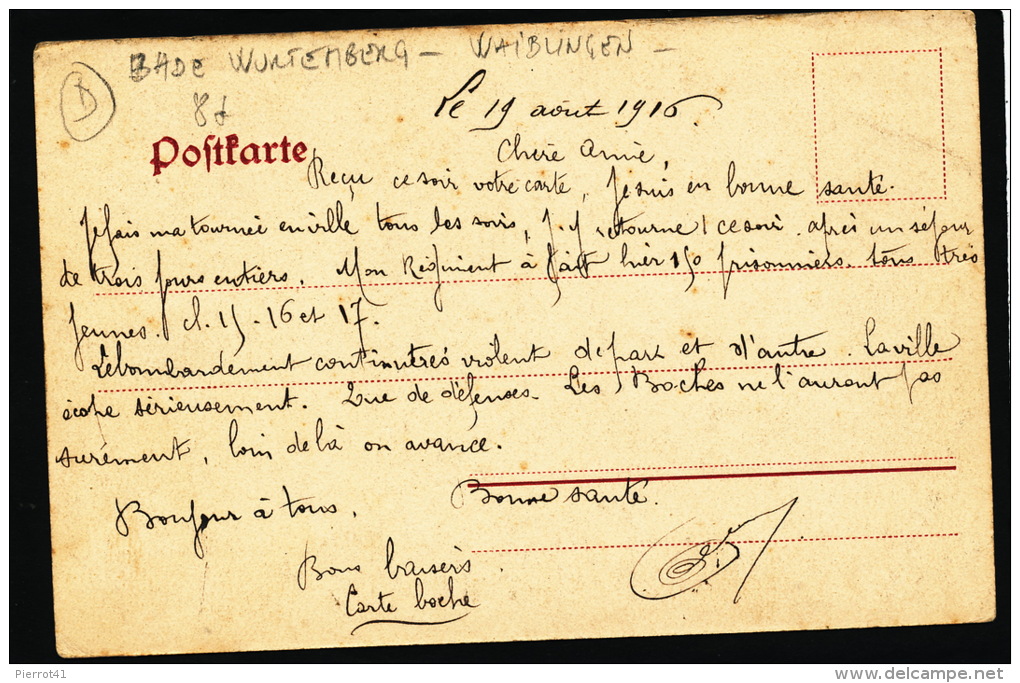 BADE WURTEMBERG - WAIBLINGEN -
B
8d
Postkarte
Le 19 août 1916
Chère Amie,
Reçu ce soir votre carte, Je suis en bonne santé.
Je fais ma tournée en ville tous les soirs, J'y retourne ce soir. après un séjour
de trois jours entiers. Mon Régiment à fait hier 150 prisonniers. tous très
jeunes. cl. 15. 16 et 17.
Le bombardement continu très violent de part et d'autre. La ville
écope sérieusement. Que de défenses. Les Boches ne l'auront pas
surément, loin de là on avance.
Bonjour à tous. Bonne santé.
Bons baisers.
Carte boche
Pierrot41
delcampe.net